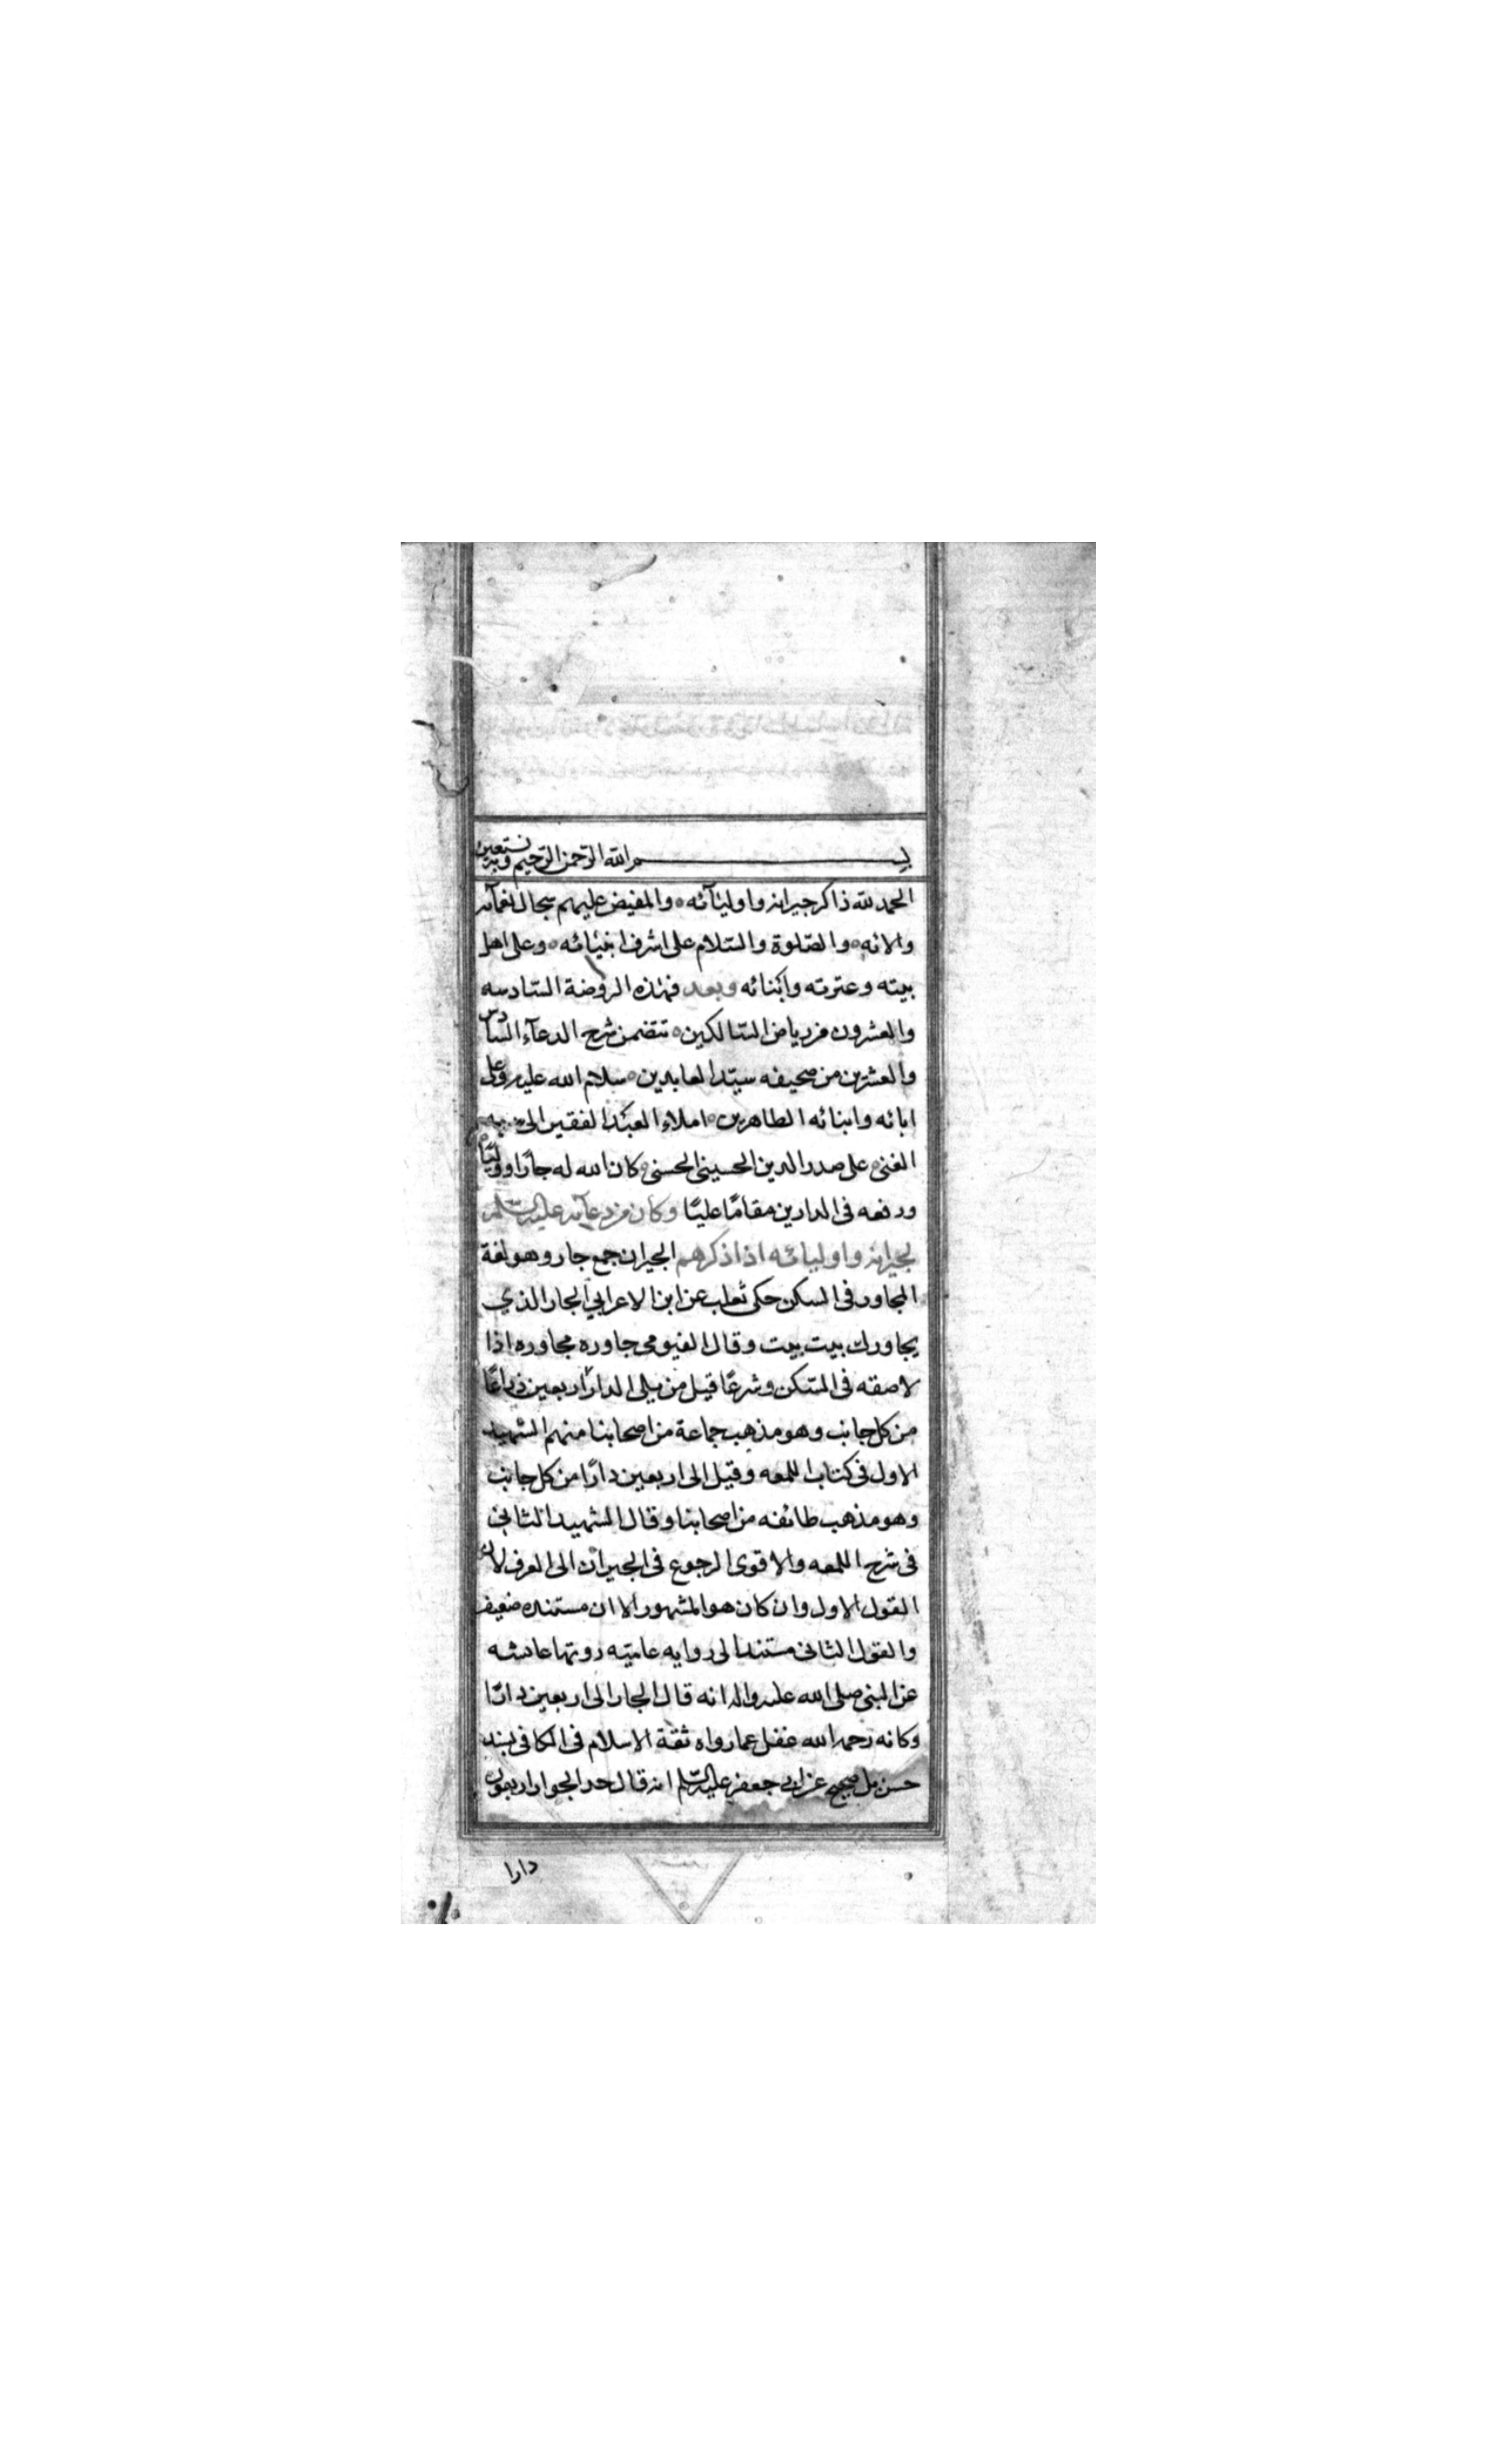 بسم الله الرحمن الرحيم وبه نستعين
الحمد لله ذاكر جيرانه واوليآئه والمفيض عليهم سجال نعمآئه
والائه والصّلوة والسّلام على اشرف انبيائه وعلى اهل
بيته وعترته وابنائه وبعد فهذه الروضة السّادسه
والعشرون من رياض السّالكين تتضمن شرح الدعآء السادس
والعشرين من صحيفه سيّد العابدين سلام الله عليه وعلى
ابائه وابنائه الطاهرين املاء العبد الفقير الى ربه
الغنى على صدر الدين الحسينى الحسنى كان الله له جارًا ووليًّا
ورفعه فى الدارين مقامًا عليًا وكان من دعآئه عليه السّلم
لجيرانه واوليائه اذا ذكرهم الجيران جمع جار وهو لغة
المجاور فى السكن حكى ثعلب عن ابن الاعرابي الجار الذي
يجاورك بيت بيت وقال الفيومى جاوره مجاوره اذا
لاصقه فى السّكن وشرعًا قيل من يلى الدار اربعين ذراعًا
من كل جانب وهو مذهب جماعة من اصحابنا منهم الشهيد
الاول فى كتاب اللمعه وقيل الى اربعين دارًا من كل جانب
وهو مذهب طائفه من اصحابنا وقال الشهيد الثاني
فى شرح اللمعه والاقوى الرجوع فى الجيران الى العرف لان
القول الاول وان كان هو المشهور الا ان مستنده ضعيف
والقول الثانى مستند الى روايه عاميّه روتها عائشه
عن النبى صلى الله عليه واله انه قال الجار الى اربعين دارًا
وكانه رحمه الله غفل عما رواه ثقة الاسلام فى الكافى بسند
حسن بل صحيح عن ابي جعفر عليه السّلم انه قال حد الجوار اربعون
دارا